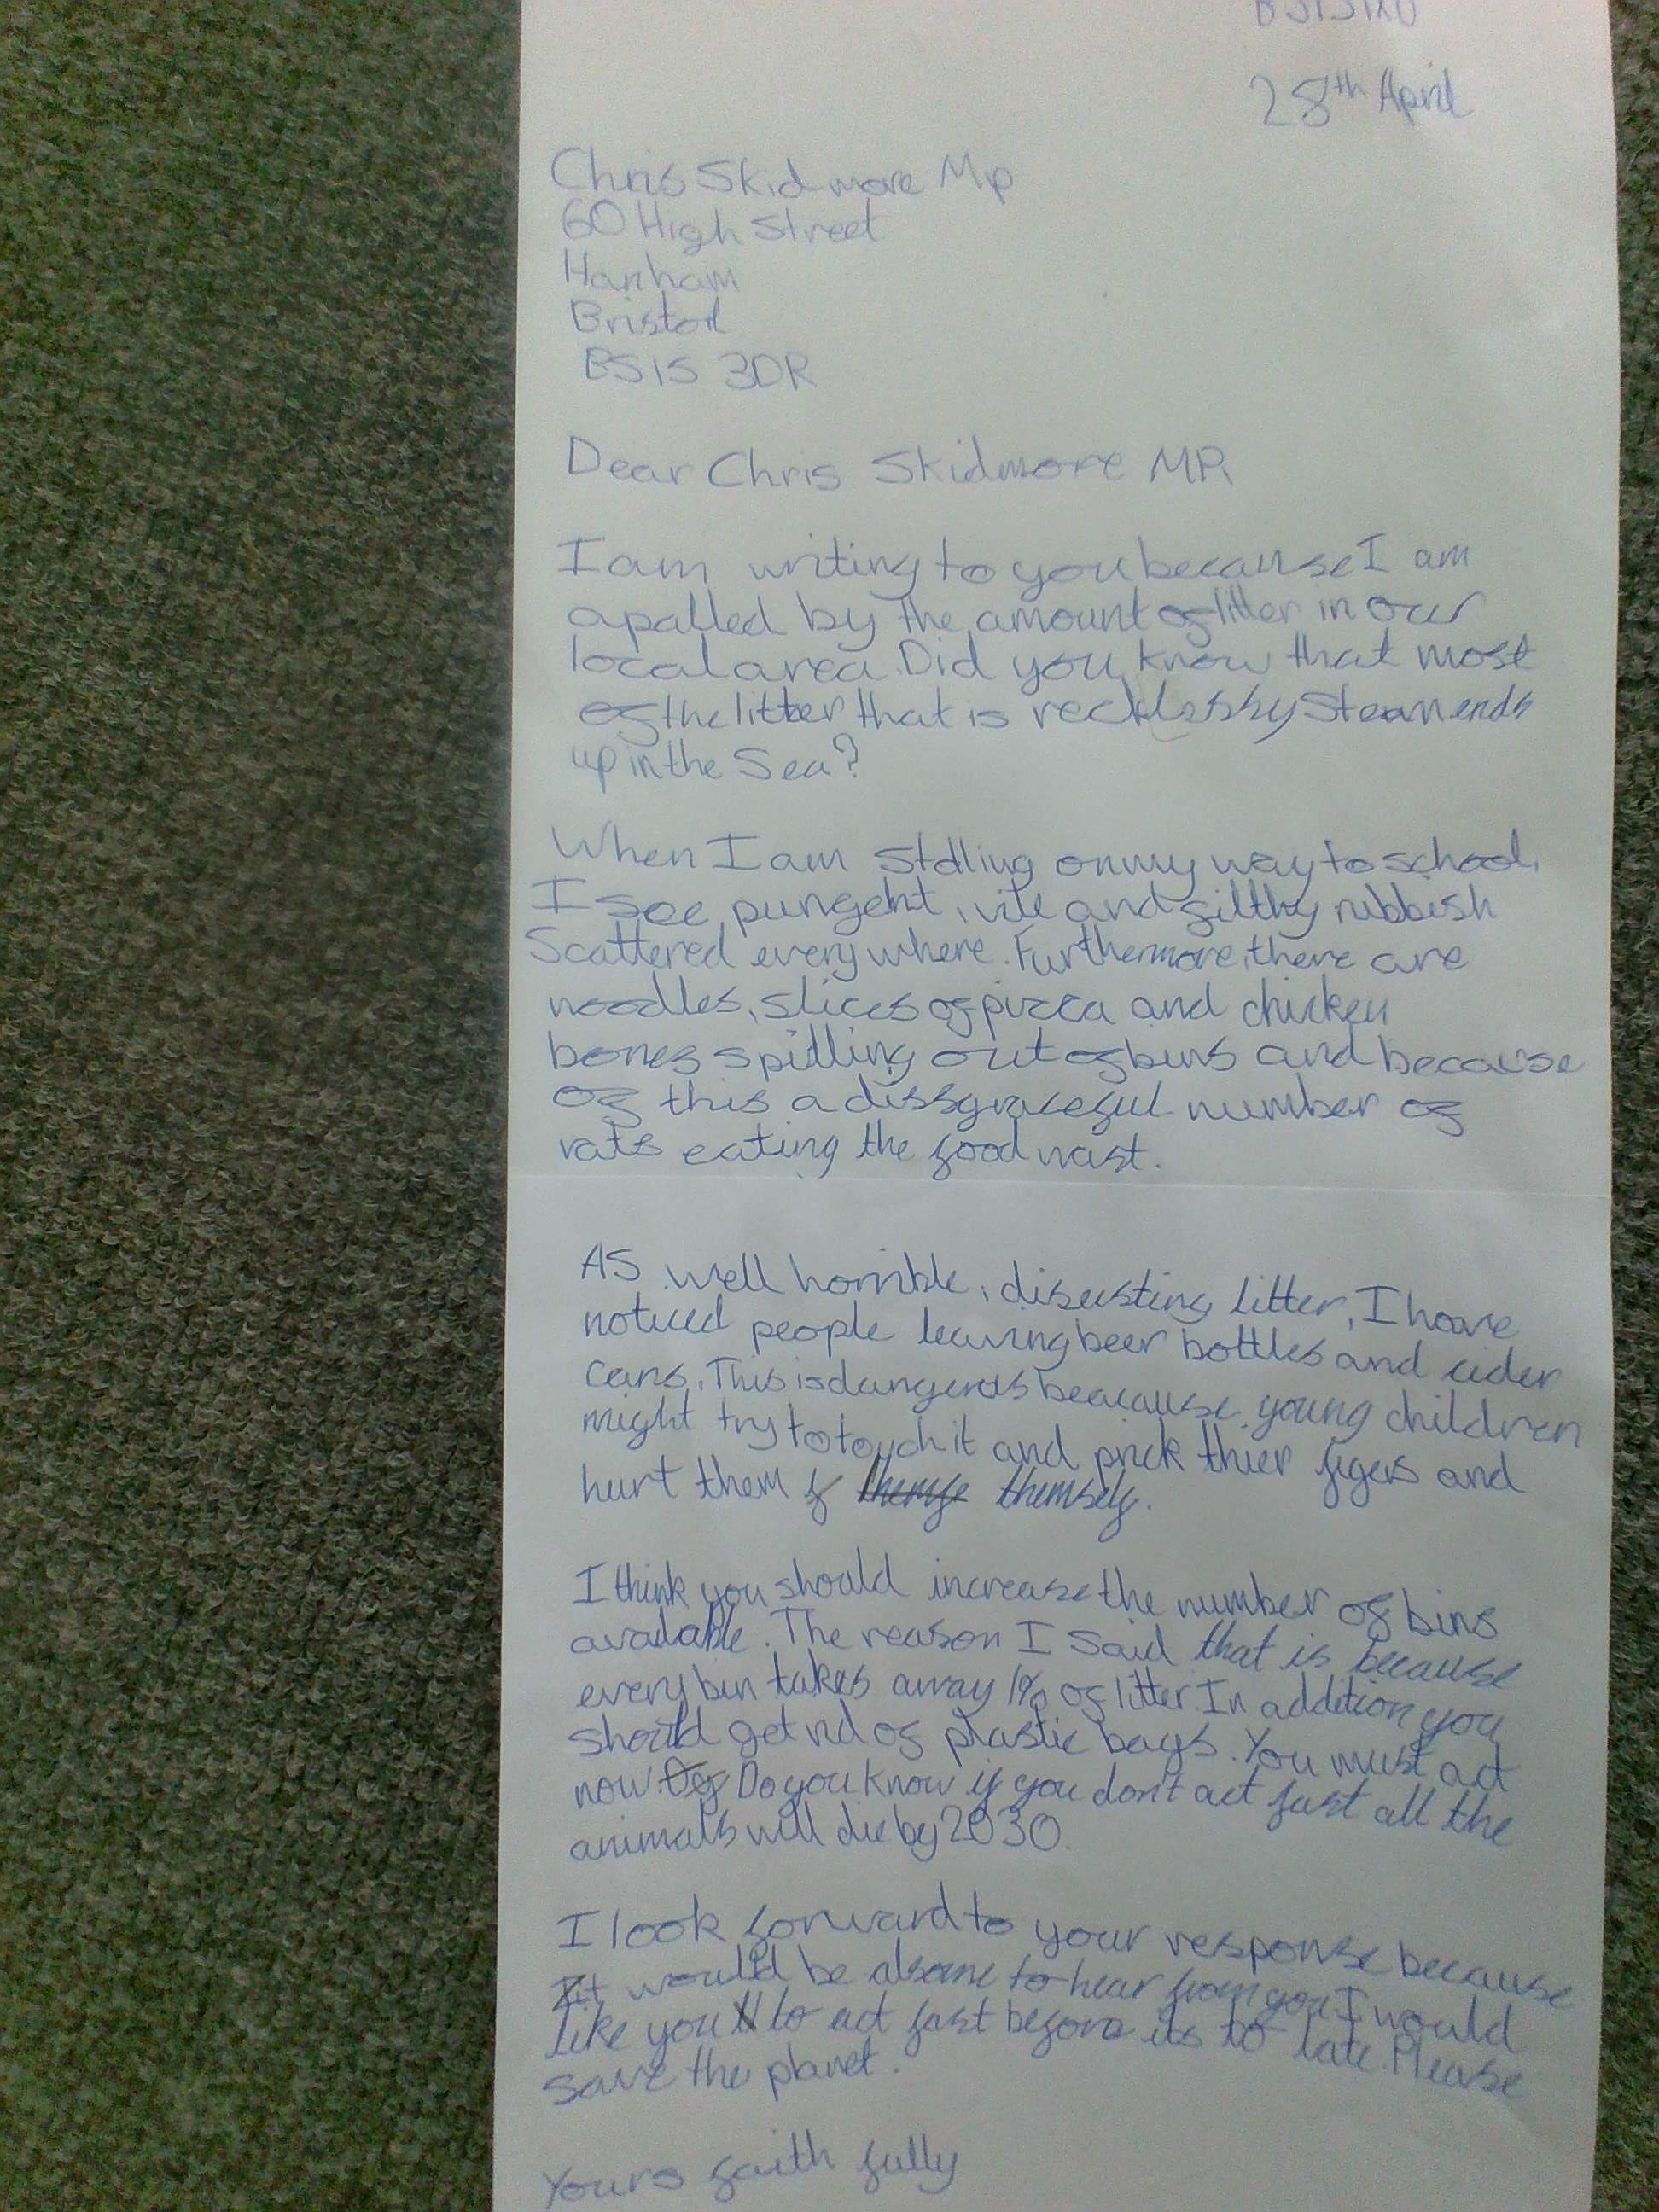 28th April
Chris Skidmore Mp
60 High Street
Hanham
Bristol
BS15 3DR
Dear Chris Skidmore MP.
I am writing to you because I am
apalled by the amount of litter in our
local area. Did you know that most
of the litter that is recklessly ends
up in the Sea?
When I am on my way to school,
I see pungent, vile and filthy rubbish
Scattered every where. Furthermore, there are
noodles, slices of pizza and chicken
bones spilling out of bins and because
of this a dissgraceful number of
rats eating the food wast.
AS well horrible, disgusting litter, I have
noticed people leaving beer bottles and cider
cans. This is because young children
might try to touch it and prick thier figers and
hurt them f themself.
I think you should increase the number of bins
available. The reason I Said that is because
every bin takes away 1% of litter. In addition you
should get rid of plastic bags. You must act
now. Do you know if you don't act fast all the
animals will die by 2030.
I look forward to your response because
it would be to hear from you. I would
like you to act fast before its to late. Please
save the planet.
Yours faith fully